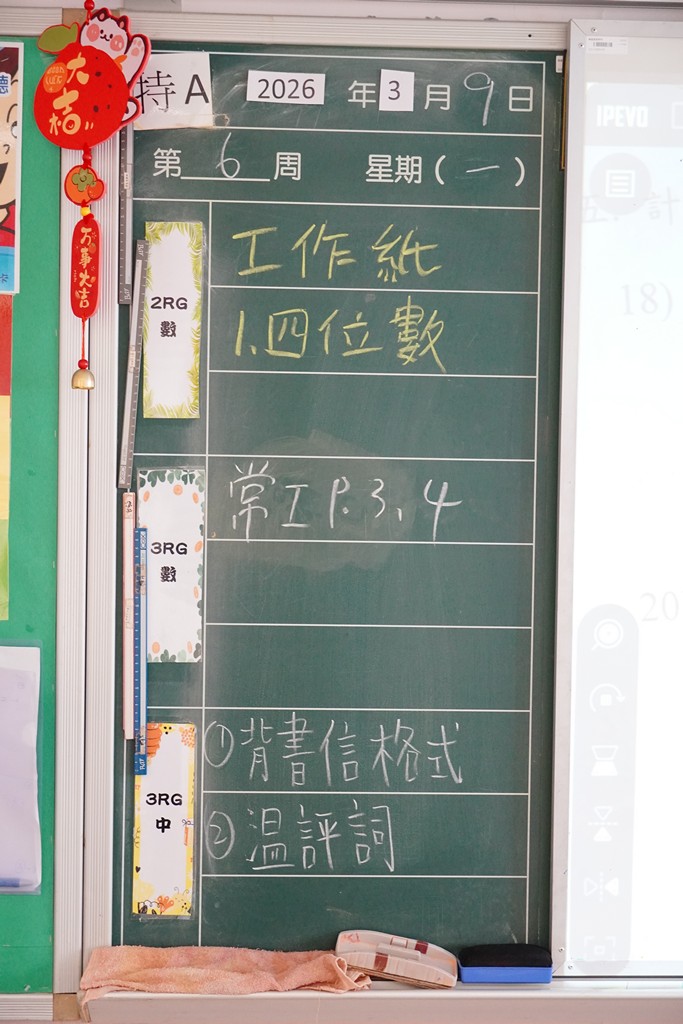 大吉
萬事大吉
德
特A
2026 年 3 月 9 日
第 6 周 星期(一)
2RG
數
工作紙
1. 四位數
3RG
數
常工 P.3、4
3RG
中
①背書信格式
②温評詞
IPEVO
計
18)
20